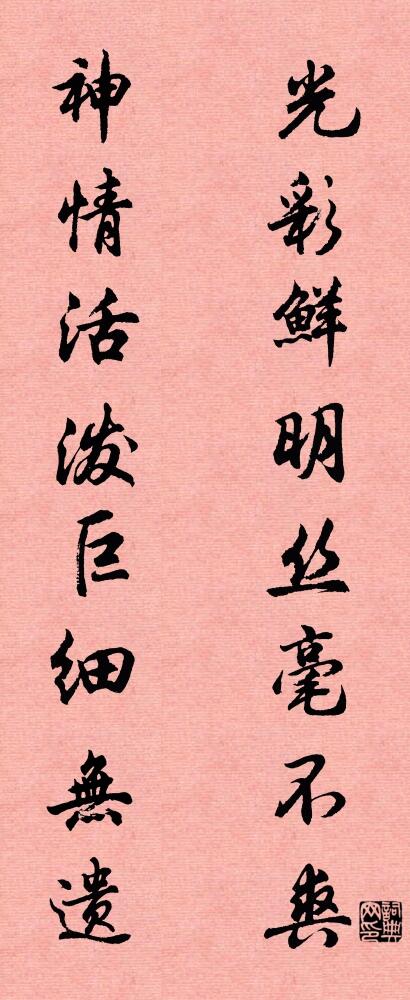 光彩鮮明丝毫不爽
神情活泼巨细無遗
詞典网印